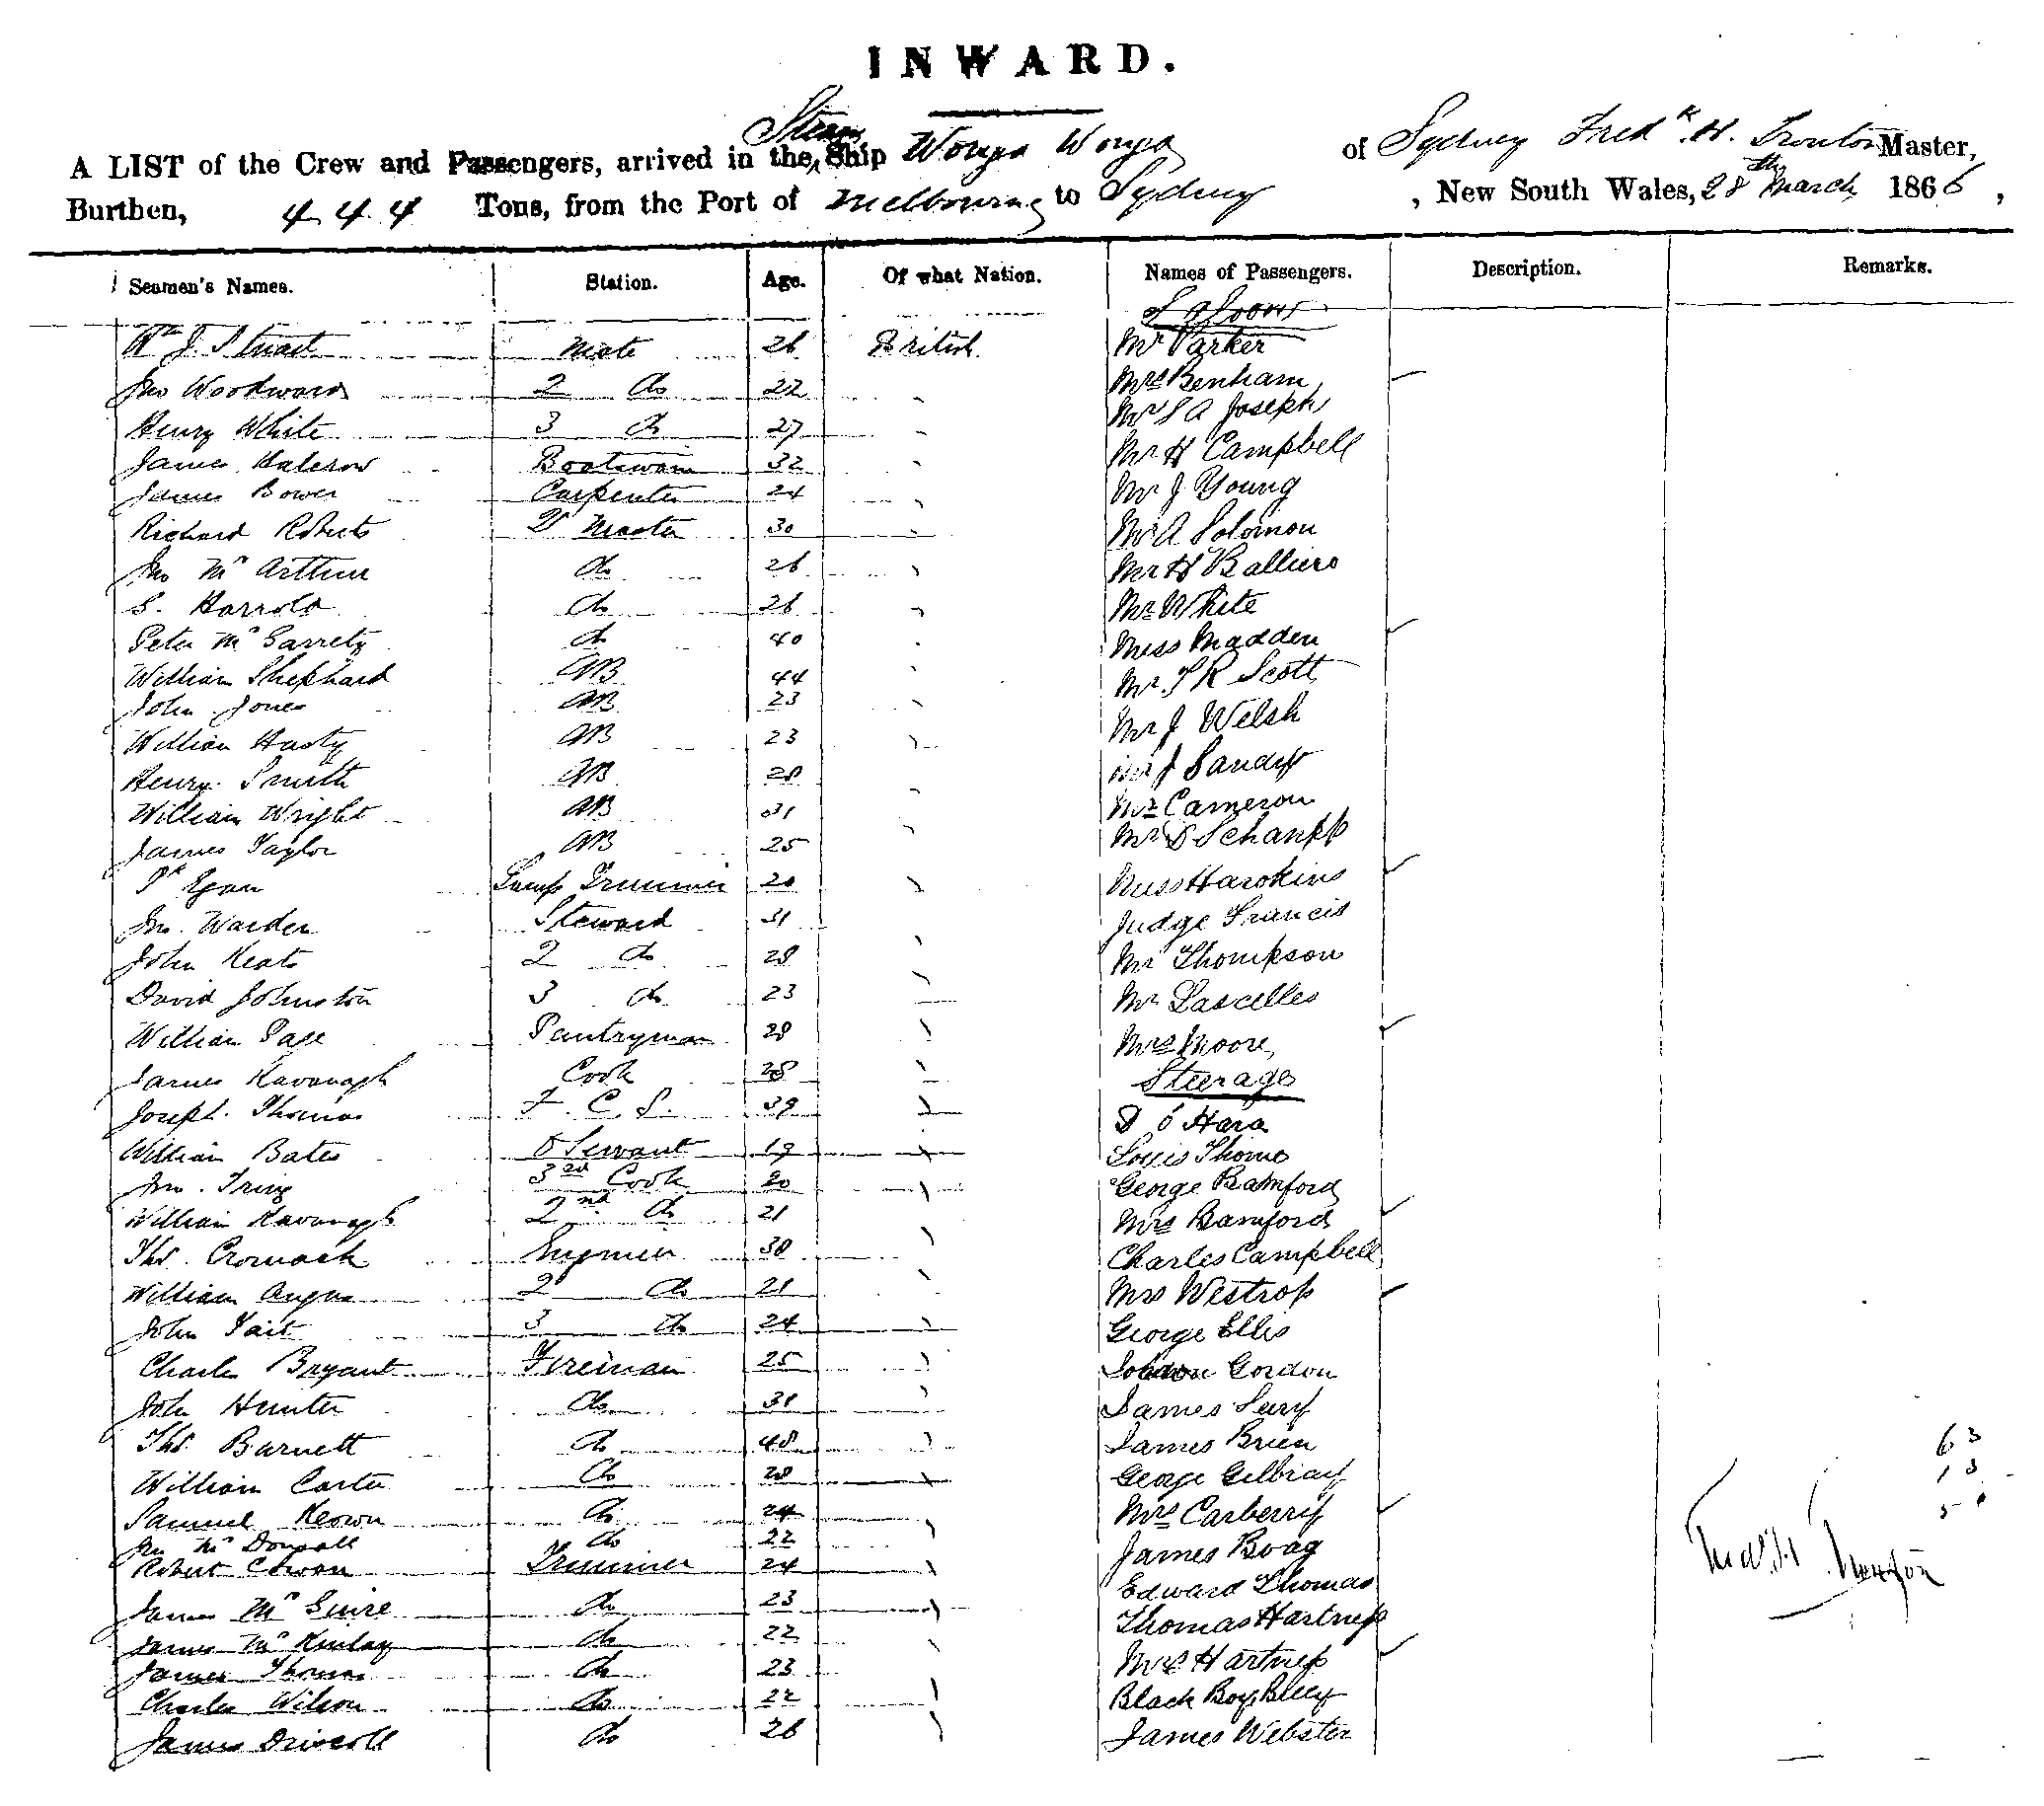 INWARD.
A LIST of the Crew and Passengers, arrived in the Steam Ship Wonga Wonga of Sydney Fredk. H. Trouton Master,
Burthen, 444 Tons, from the Port of Melbourne to Sydney, New South Wales, 28th March 1866,
Seamen's Names. Station. Age. Of what Nation. Names of Passengers. Description. Remarks.
Saloon
Wm J. Stuart Mate 26 British Mr Parker
Jno Woodward 2 do 22 Mrs Benham
Henry White 3 do 27 Mr S A Joseph
James Halcrow Boatswain 32 Mr H Campbell
James Bower Carpenter 24 Mr J Young
Richard Roberts Qr Master 30 Mr A Solomon
Jno McArthur do 26 Mr H
S. Harrold do 26 Mr White
Peter McGarrety do 40 Miss Madden
William Shephard AB 44 Mr. T R Scott
John Jones AB 23 Mr J Welsh
William Hasty AB 23 Mr J
Henry Smith AB 28 Mr Cameron
William Wright AB 31 Mr Schankk
James Taylor AB 25
Pk Egan Lamp Trimmer 20 Miss Harokins
Jno. Warden Steward 31 Judge Francis
John Keats 2 do 28 Mr Thompson
David Johnston 3 do 23 Mr Lascelles
William Page Pantryman 28 Mrs Moore
James Kavanagh Cook 28 Steerage
Joseph Thomas F. C. S. 39 D O'Hara
William Bates Servant 19 Louis Thorne
Jno. 3rd Cook 20 George Bamford
William Kavanagh 2nd do 21 Mrs Bamford
Thos. Cromack Engineer 38 Charles Campbell
William Angus 2 do 21 Mrs Westrop
John Tait 3 do 24 George Ellis
Charles Bryant Fireman 25 Gordon
John Hunter do 31 James
Thos. Burnett do 48 James Brien
William Carter do 28 George
Samuel Keown do 24 Mrs Carberry
Jno McDougall do 22 James Boag
Robert Cowan Trimmer 24 Edward Thomas
James McGuire do 23 Thomas Hartnup
James McKinlay do 22 Mrs Hartnup
James Thomas do 23
Charles Wilson do 22 Black Boy Billy
James Driscoll do 26 James Webster
63
13
50
Fred. H. Trouton